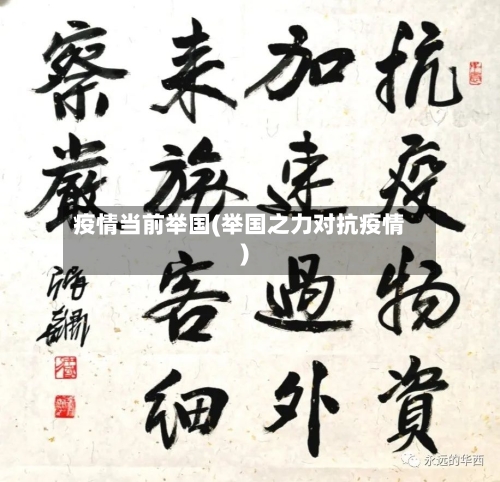 抗疫物資
加速過外
来旅客細
察嚴
疫情当前举国(举国之力对抗疫情
)
永远的华西